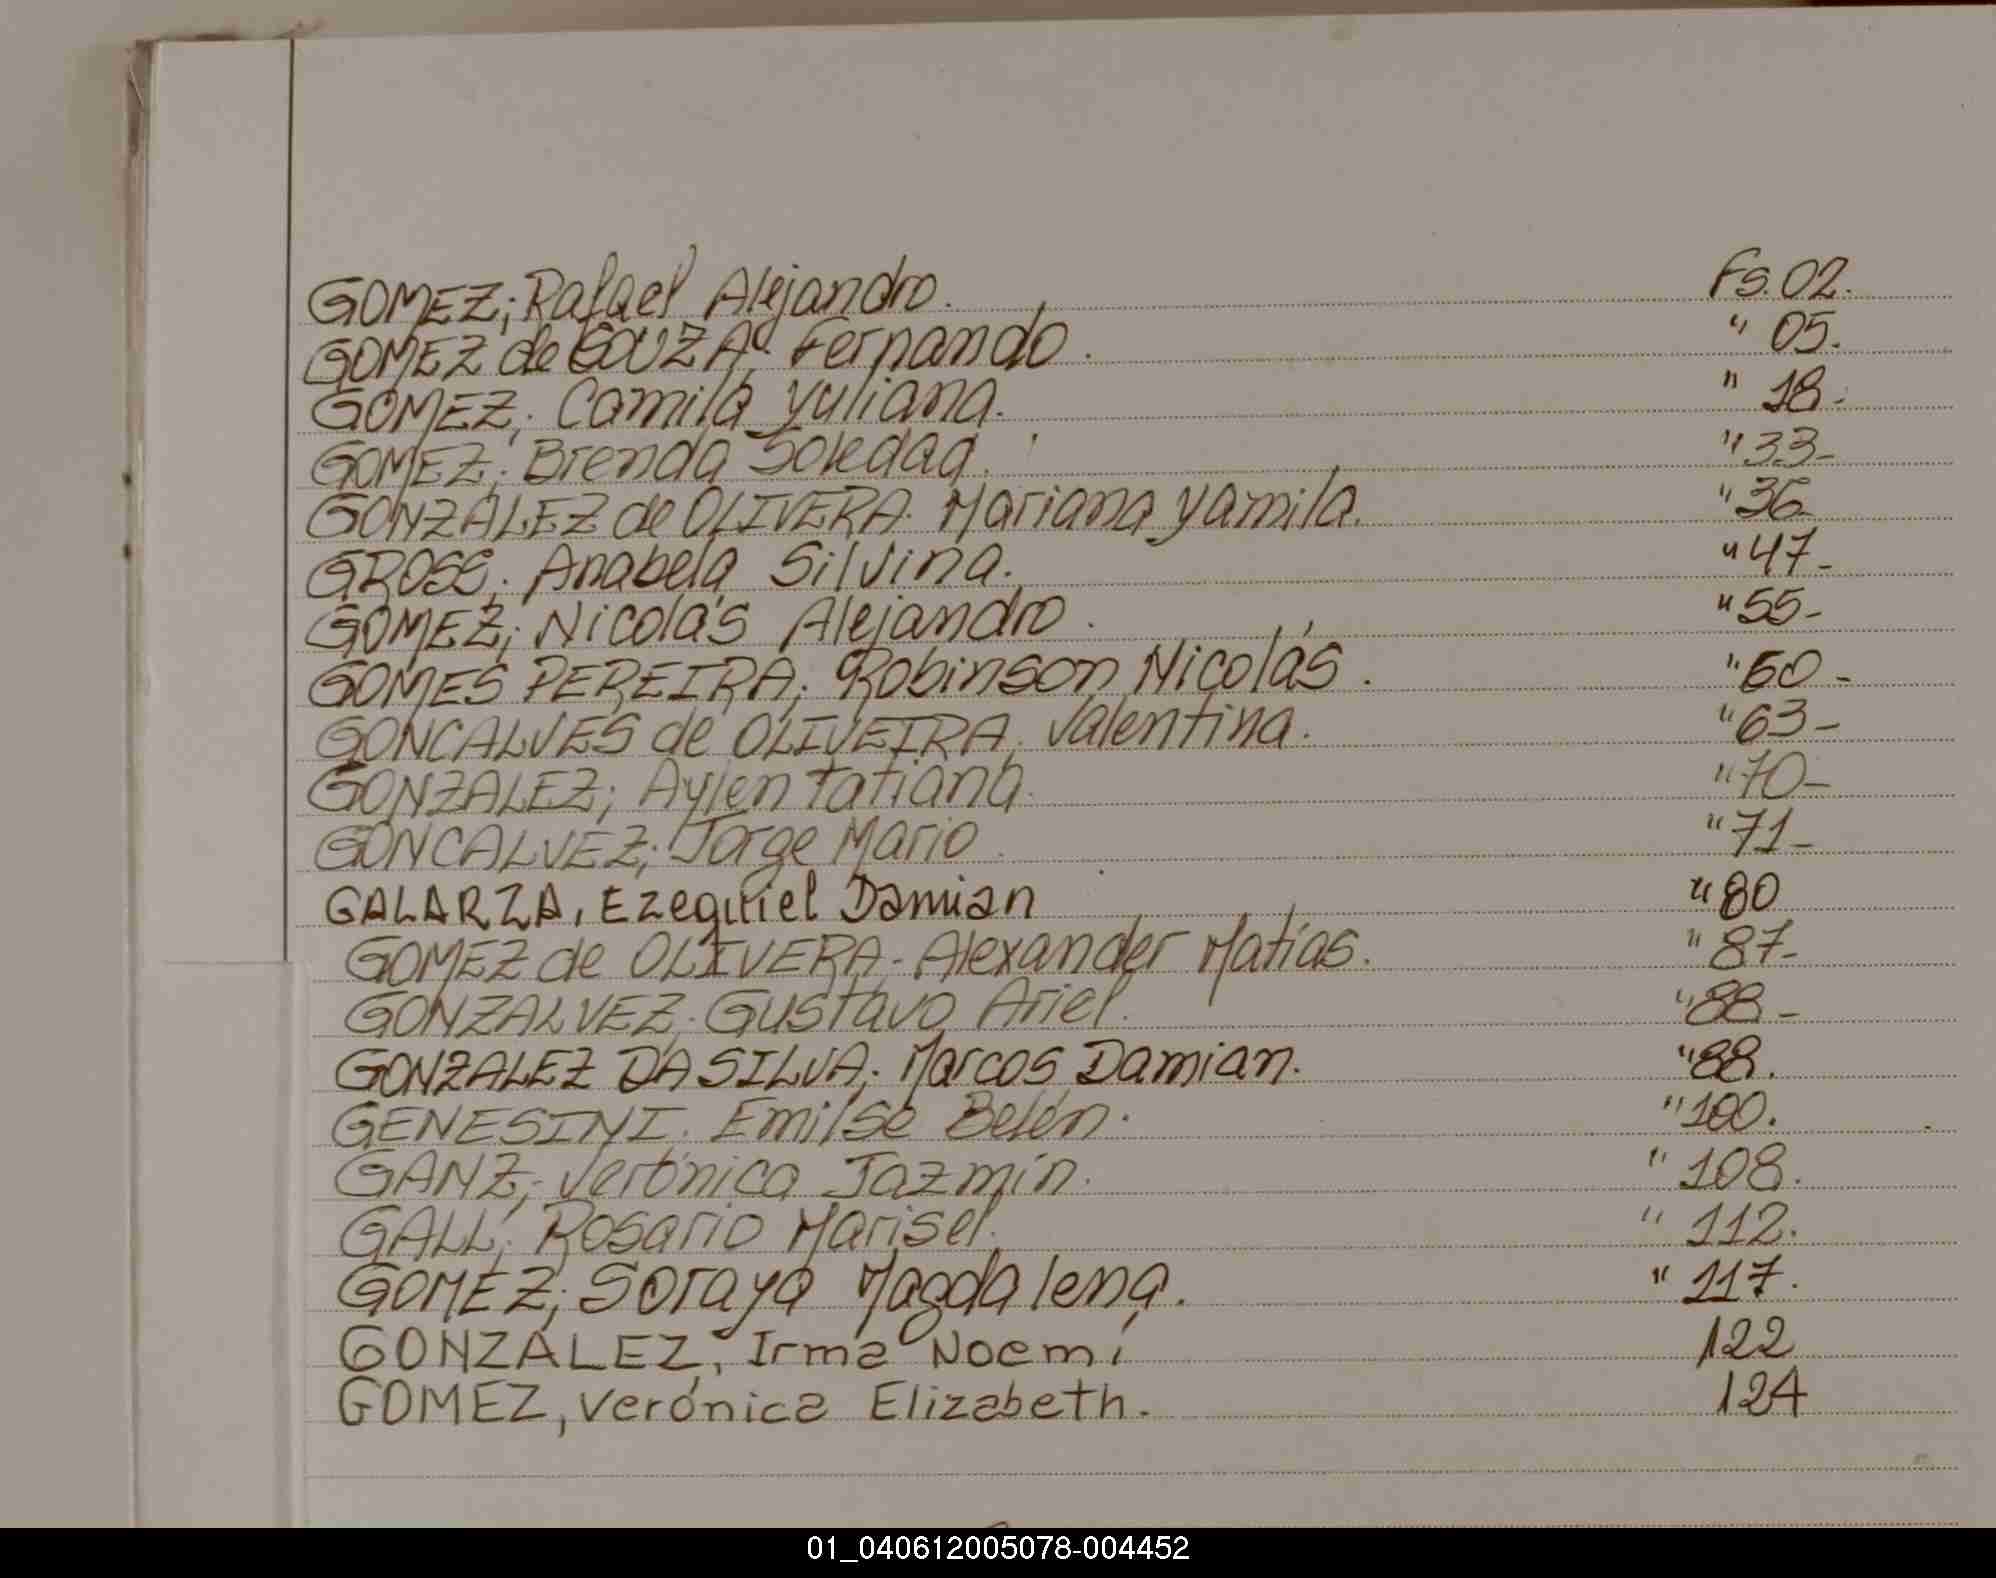 GOMEZ; Rafael Alejandro. Fs. 02.
GOMEZ de SOUZA, Fernando. " 05.
GOMEZ; Camila Yuliana. " 18.
GOMEZ; Brenda Soledad. " 33-
GONZALEZ de OLIVERA. Mariana Yamila. " 36
GROSS; Anabela Silvina. " 47-
GOMEZ; Nicolás Alejandro. " 55-
GOMES PEREIRA; Robinson Nicolás. " 60-
GONCALVES de OLIVEIRA, Valentina. " 63-
GONZALEZ; Aylen Tatiana. " 70-
GONCALVEZ; Jorge Mario. " 71-
GALARZA, Ezequiel Damian " 80
GOMEZ de OLIVERA- Alexander Matías. " 87-
GONZALVEZ; Gustavo Ariel. " 88-
GONZALEZ DA SILVA; Marcos Damian. " 88.
GENESINI. Emilse Belén. " 100.
GANZ; Verónica Jazmín. " 108.
GALL; Rosario Marisel. " 112.
GOMEZ; Soraya Magdalena. " 117.
GONZALEZ, Irma Noemí 122
GOMEZ, Verónica Elizabeth. 124
01_040612005078-004452